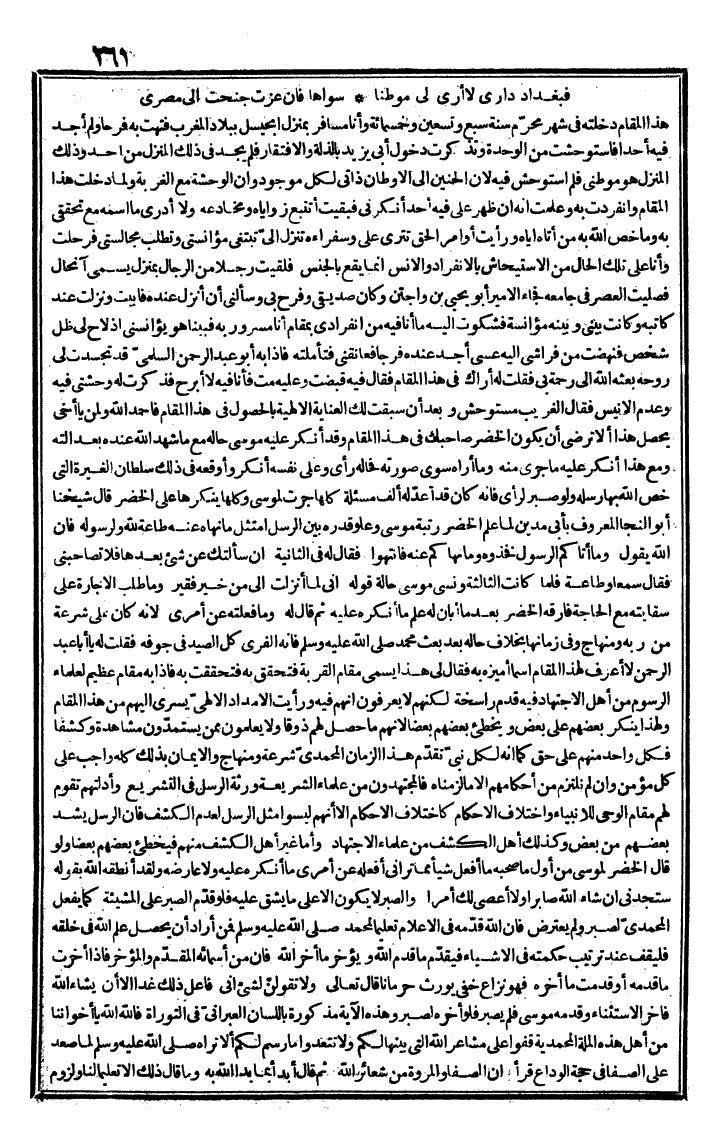 ٣٦١
فبغداد دارى لا أرى لى موطنا * سواها فان عزت جنحت الى مصرى
هذا المقام دخلته فى شهر محرّم سنة سبع وتسعين وخمسمائة وأنا مسافر بمنزل ابجيسل ببلاد المغرب فتهت به فرحا ولم أجد
فيه أحدا فاستوحشت من الوحدة وتذكرت دخول أبى يزيد بالذلة والافتقار فلم يجد فى ذلك المنزل من أحد وذلك
المنزل هو موطنى فلم استوحش فيه لان الحنين الى الاوطان ذاتى لكل موجود وان الوحشة مع الغربة ولما دخلت هذا
المقام وانفردت به وعلمت انه ان ظهر على فيه أحد أنكرنى فبقيت أتتبع زواياه ومخادعه ولا أدرى ما اسمه مع تحققى
به وما خص الله به من أتاه اياه ورأيت أوامر الحق تترى على وسفراءه تنزل الىّ تبتغى مؤانستى وتطلب مجالستى فرحلت
وأنا على تلك الحال من الاستيحاش بالانفراد والانس انما يقع بالجنس فلقيت رجلا من الرجال بمنزل يسمى آنحال
فصليت العصر فى جامعه فجاء الامير أبو يحيى بن واجتن وكان صديقى وفرح بى وسألنى أن أنزل عنده فأبيت ونزلت عند
كاتبه وكانت بينى وبينه مؤانسة فشكوت اليه ما أنا فيه من انفرادى بمقام أنا مسرور به فبينا هو يؤانسنى اذ لاح لى ظل
شخص فنهضت من فراشى اليه عسى أجد عنده فرجا فعانقنى فتأملته فاذا به أبو عبد الرحمن السلمى قد تجسدت لى
روحه بعثه الله الى رحمة بى فقلت له أراك فى هذا المقام فقال فيه قبضت وعليه مت فأنا فيه لا أبرح فذكرت له وحشتى فيه
وعدم الانيس فقال الغريب مستوحش وبعد أن سبقت لك العناية الالهية بالحصول فى هذا المقام فاحمد الله ولمن يا أخى
يحصل هذا ألا ترضى أن يكون الخضر صاحبك فى هذا المقام وقد أنكر عليه موسى حاله مع ما شهد الله عنده بعدالته
ومع هذا أنكر عليه ما جرى منه وما أراه سوى صورته فحاله رأى وعلى نفسه أنكر وأوقعه فى ذلك سلطان الغيرة التى
خص الله بها رسله ولو صبر لرأى فانه كان قد أعدّ له ألف مسئلة كلها جرت لموسى وكلها ينكرها على الخضر قال شيخنا
أبو النجا المعروف بأبى مدين لما علم الخضر رتبة موسى وعلو قدره بين الرسل امتثل ما نهاه عنه طاعة لله ولرسوله فان
الله يقول وما أتاكم الرسول فخذوه وما نهاكم عنه فانتهوا فقال له فى الثانية ان سألتك عن شئ بعدها فلا تصاحبنى
فقال سمعا وطاعة فلما كانت الثالثة ونسى موسى حالة قوله انى لما أنزلت الى من خير فقير وما طلب الاجارة على
سقايته مع الحاجة فارقه الخضر بعد ما أبان له علم ما أنكره عليه ثم قال له وما فعلته عن أمرى لانه كان على شرعة
من ربه ومنهاج وفى زمانها بخلاف حاله بعد بعث محمد صلى الله عليه وسلم فانه الفرى كل الصيد فى جوفه فقلت له يا أبا عبد
الرحمن لا أعرف لهذا المقام اسما أميزه به فقال لى هذا يسمى مقام القربة فتحقق به فتحققت به فاذا به مقام عظيم لعلماء
الرسوم من أهل الاجتهاد فيه قدم راسخة لكنهم لا يعرفون انهم فيه ورأيت الامداد الالهىّ يسرى اليهم من هذا المقام
ولهذا ينكر بعضهم على بعض ويخطئ بعضهم بعضا لانهم ما حصل لهم ذوقا ولا يعلمون ممن يستمدّون مشاهدة وكشفا
فكل واحد منهم على حق كما انه لكل نبىّ تقدّم هذا الزمان المحمدىّ شرعة ومنهاج والايمان بذلك كله واجب على
كل مؤمن وان لم نلتزم من أحكامهم الا ما لزمناه فالمجتهدون من علماء الشريعة ورثة الرسل فى التشريع وأدلتهم تقوم
لهم مقام الوحى للانبياء واختلاف الاحكام كاختلاف الاحكام الا أنهم ليسوا مثل الرسل لعدم الكشف فان الرسل يشد
بعضهم من بعض وكذلك أهل الكشف من علماء الاجتهاد وأما غير أهل الكشف منهم فيخطئ بعضهم بعضا ولو
قال الخضر لموسى من أول ما صحبه ما أفعل شيأ مما ترانى أفعله عن أمرى ما أنكره عليه ولا عارضه ولقد أنطقه الله بقوله
ستجدنى ان شاء الله صابرا ولا أعصى لك أمرا والصبر لا يكون الا على ما يشق عليه فلو قدّم الصبر على المشيئة كما يفعل
المحمدىّ لصبر ولم يعترض فان الله قدّمه فى الاعلام تعليما لمحمد صلى الله عليه وسلم فمن أراد أن يحصل علم الله فى خلقه
فليقف عند ترتيب حكمته فى الاشياء فيقدّم ما قدم الله ويؤخر ما أخر الله فان من أسمائه المقدّم والمؤخر فاذا أخرت
ما قدمه أو قدمت ما أخره فهو نزاع خفىّ يورث حرمانا قال تعالى ولا تقولنّ لشئ انى فاعل ذلك غدا الا أن يشاء الله
فاخر الاستثناء وقدمه موسى فلم يصبر فلو أخره لصبر وهذه الآية مذكورة باللسان العبرانىّ فى التوراة فالله الله يا أخواننا
من أهل هذه الملة المحمدية قفوا على مشاعر الله التى بينها لكم ولا تتعدوا ما رسم لكم ألا تراه صلى الله عليه وسلم لما صعد
على الصفا فى حجة الوداع قرأ ان الصفا والمروة من شعائر الله ثم قال أبدأ بما بدأ الله به وما قال ذلك الا تعليما لنا ولزوم